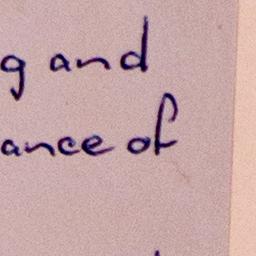 g and
ance of